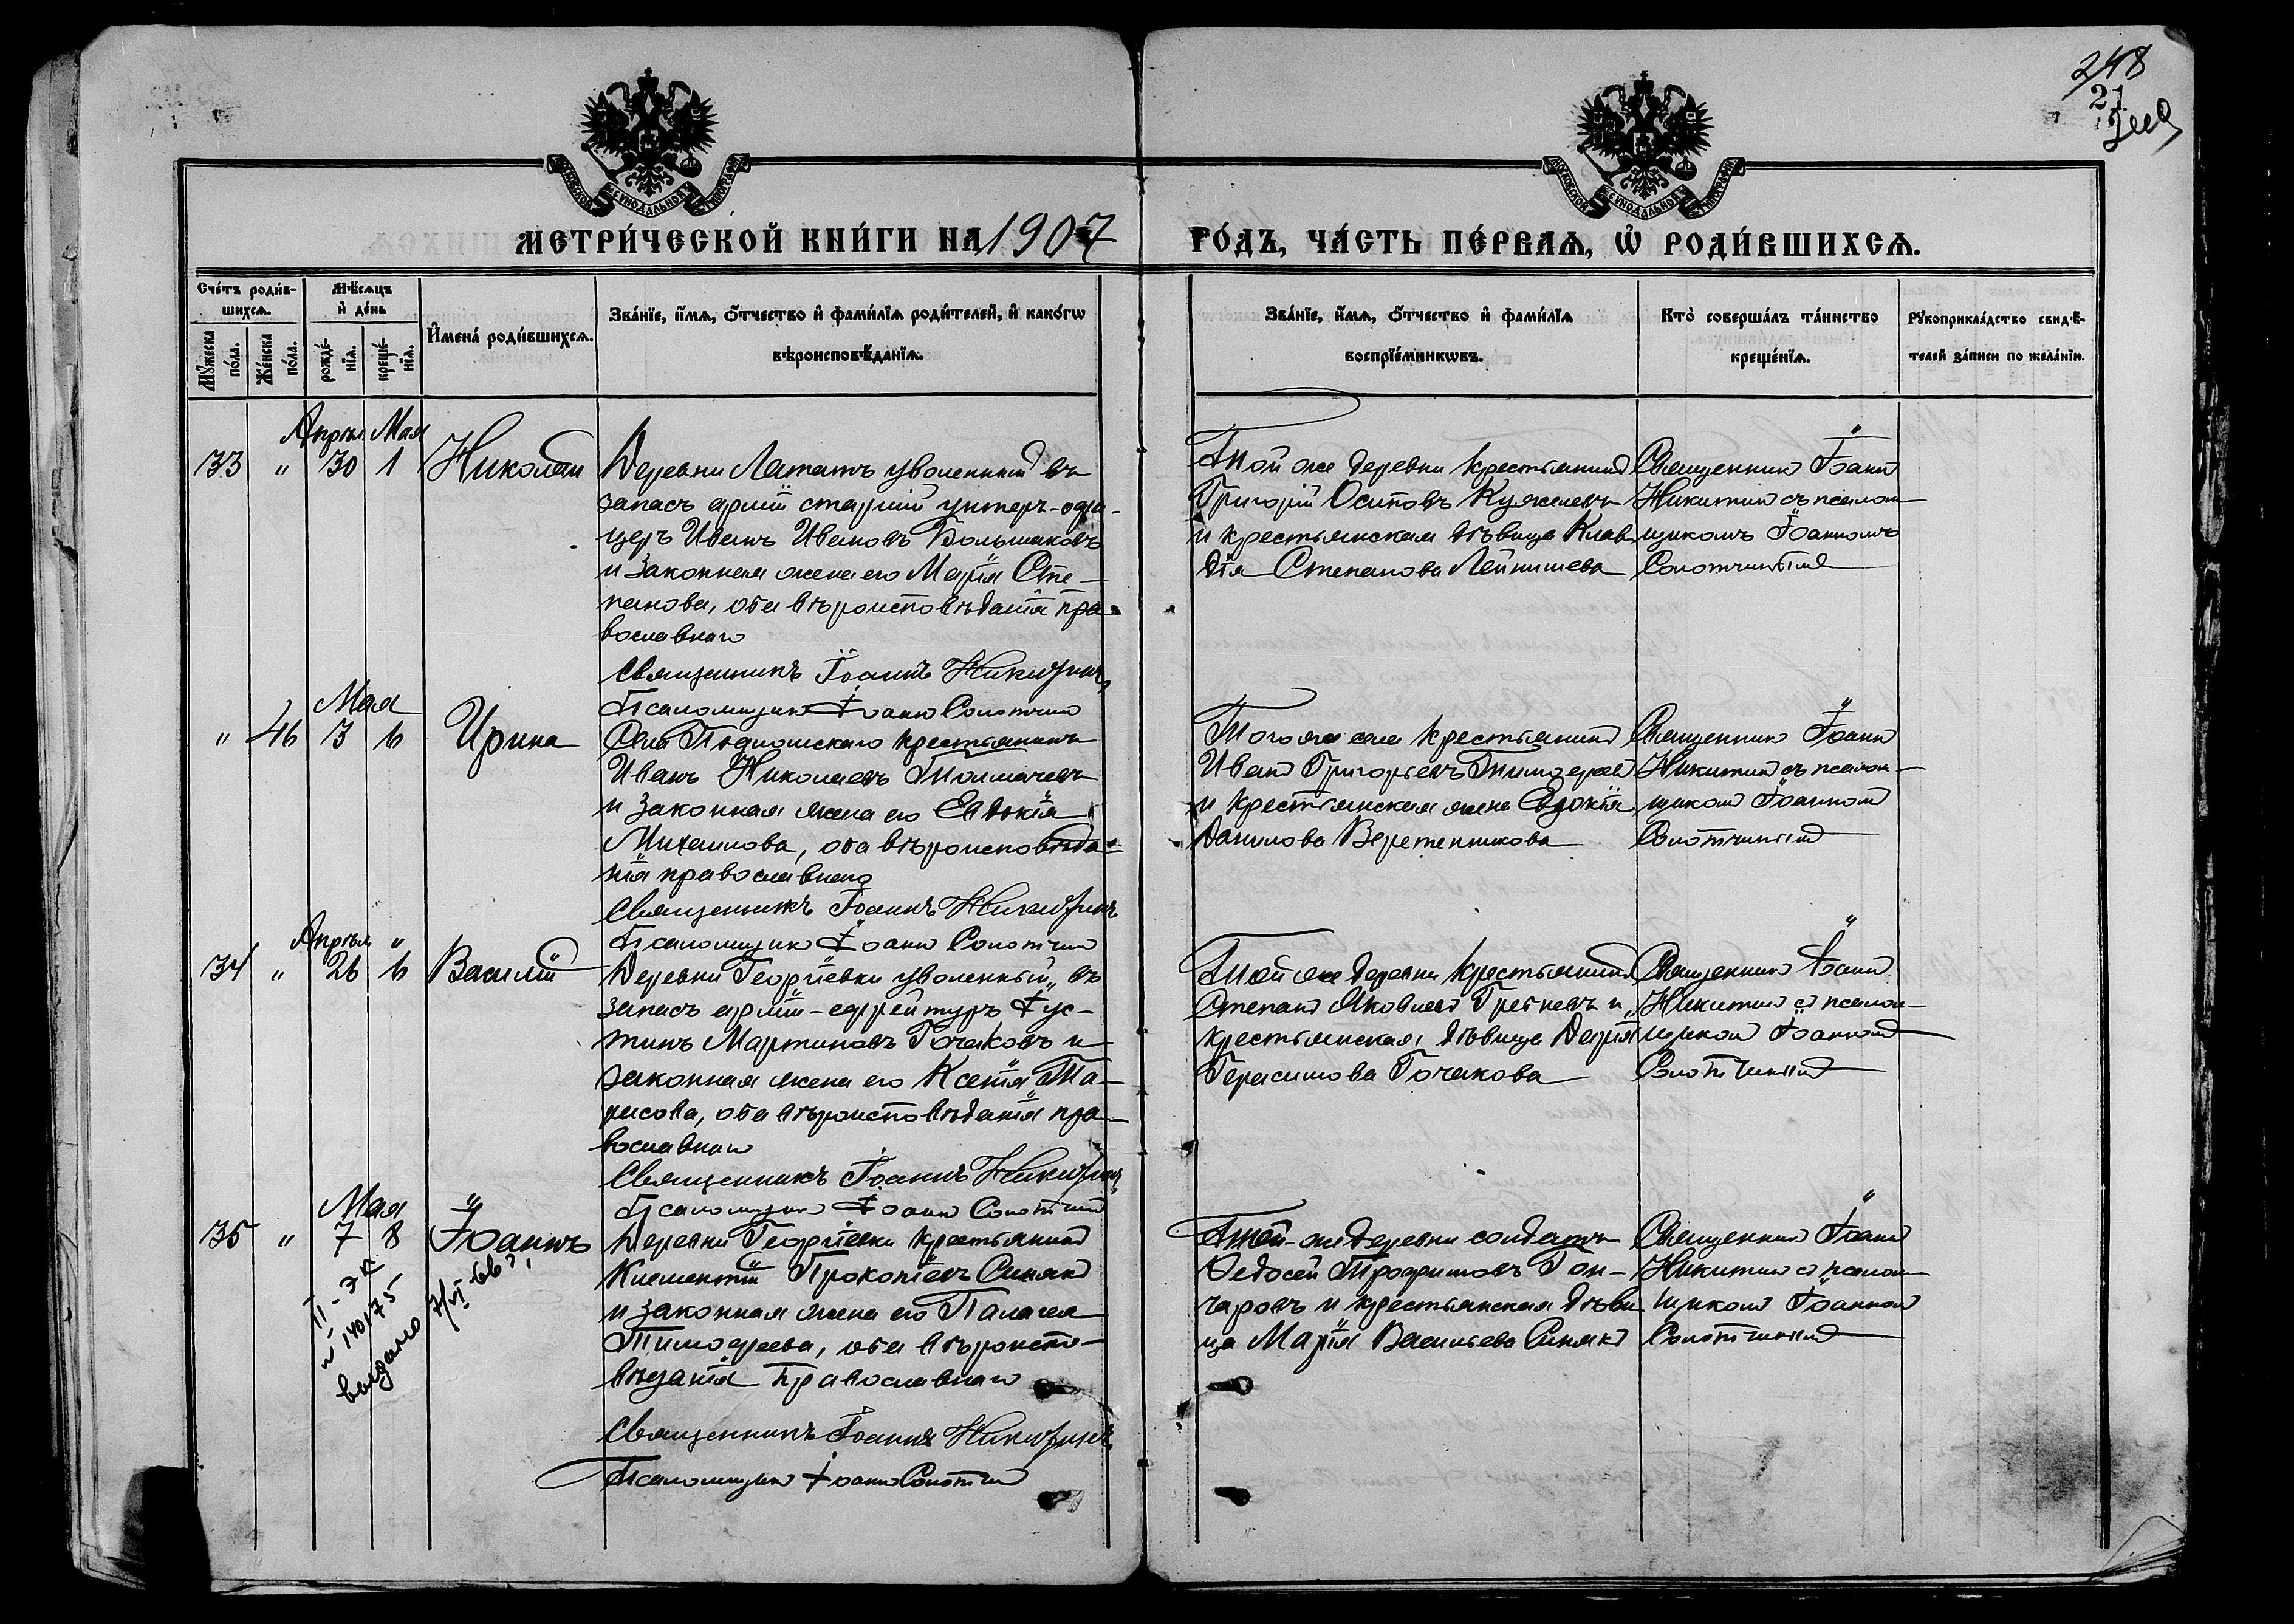 248
27
МЕТРИ́ЧЕСКОЙ КНИ́ГИ НА 1907 ГО́ДЪ, ЧА́СТЬ ПЕ́РВАѦ, Ѡ РОДИ́ВШИХСѦ.
Сче́тъ роди́в-
шихсѧ.
Мꙋ́жеска по́ла.
Же́нска по́ла.
Мѣ́сѧцъ
и҆ де́нь
рожде́-
нїѧ.
креще́-
нїѧ.
И҆мена̀ роди́вшихсѧ.
Зва́нїе, и҆́мѧ, ѻ҆́тчество и҆ фами́лїѧ роди́телей, и҆ како́гѡ
вѣроисповѣ́данїѧ.
Зва́нїе, и҆́мѧ, ѻ҆́тчество и҆ фами́лїѧ
воспрїе́мникѡвъ.
Кто̀ соверша́лъ та́инство
креще́нїѧ.
Рꙋкоприкла́дство свидѣ́-
телей за́писи по жела́нїю.
Апрѣля Мая
33 " 30 1 Николай
Деревни Лататъ уволенный въ
запасъ армiи старшiй унтеръ-офи-
церъ Иванъ Ивановъ Большаковъ
и законная жена его Марiя Сте-
панова, оба вѣроисповѣданiя пра-
вославнаго
Священникъ Iоаннъ Никитинъ
Псаломщикъ Iоаннъ Солотчинъ
Той же деревни крестьянинъ
Григорiй Осиповъ
и крестьянская дѣвица Клав
дiя Степанова
Священникъ Iоаннъ
Никитинъ съ псалом-
щикомъ Iоанномъ
Солотчинымъ
Мая
" 46 3 6 Ирина
Села крестьянинъ
Иванъ Николаевъ Толмачевъ
и законная жена его Евдокiя
Михаилова, оба вѣроисповѣда-
нiя православнаго
Священникъ Iоаннъ Никитинъ
Псаломщикъ Iоаннъ Солотчинъ
Того же села крестьянинъ
Иванъ Григорьевъ Тимофеевъ
и крестьянская жена Евдокiя
Данилова Веретенникова
Священникъ Iоаннъ
Никитинъ съ псалом-
щикомъ Iоанномъ
Солотчинымъ
Апрѣля "
34 " 26 6 Василiй
Деревни Георгiевки уволенный въ
запасъ армiи-ефрейторъ Iус-
тинъ Мартиновъ Гочаковъ и
законная жена его Ксенiя Та-
расова, оба вѣроисповѣданiя пра-
вославнаго
Священникъ Iоаннъ Никитинъ
Псаломщикъ Iоаннъ Солотчинъ
Той же деревни крестьянинъ
Степанъ Яковлевъ и
крестьянская дѣвица Дарiя
Герасимова Гочакова
Священникъ Iоаннъ
Никитинъ съ псалом-
щикомъ Iоанномъ
Солотчинымъ
Мая
35 " 7 8 Iоаннъ
II-ЭК
n 140175
выдано 7/VI-66г.
Деревни Георгiевки крестьянинъ
Климентiй Прокопiевъ Синякъ
и законная жена его Палагея
Тимофеева, оба вѣроиспо-
вѣданiя православнаго
Священникъ Iоаннъ Никитинъ
Псаломщикъ Iоаннъ Солотчинъ
Той-же деревни солдатъ
Федосей Трофимовъ Гон-
чаровъ и крестьянская дѣви
ца Марiя Васильева Синякъ
Священникъ Iоаннъ
Никитинъ съ псалом-
щикомъ Iоанномъ
Солотчинымъ